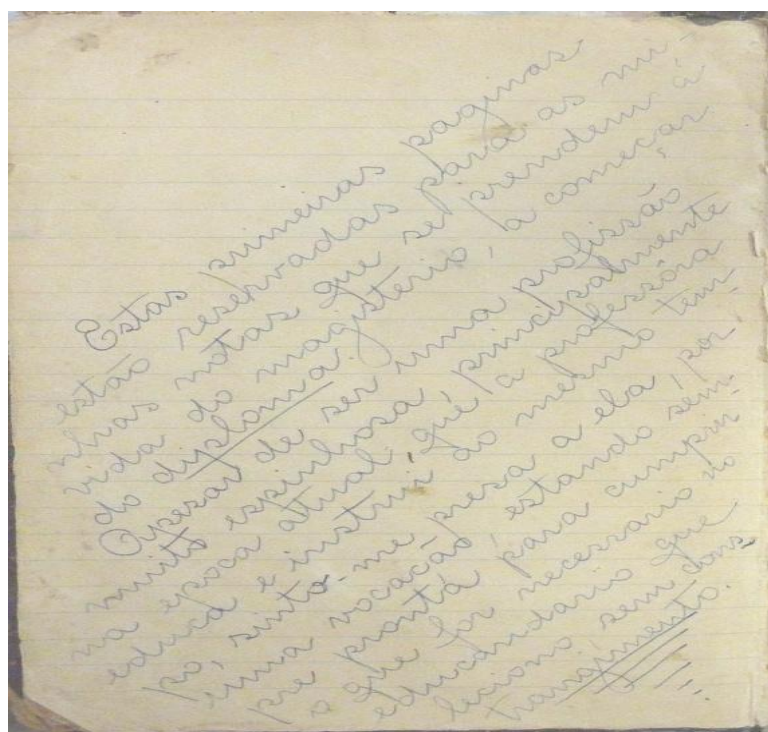 Estas primeiras paginas
estão reservadas para as mi-
nhas notas que se prendem á
vida do magisterio, a começar
do diploma.
Apesar de ser uma profissão
muito espinhosa principalmente
na epoca atual, que a professôra
educa e instrui ao mesmo tem-
po, sinto-me presa a ela, por
uma vocação, estando sem-
pre pronta para cumprir
o que for necessario no
educandario que
leciono sem cons-
trangimento.